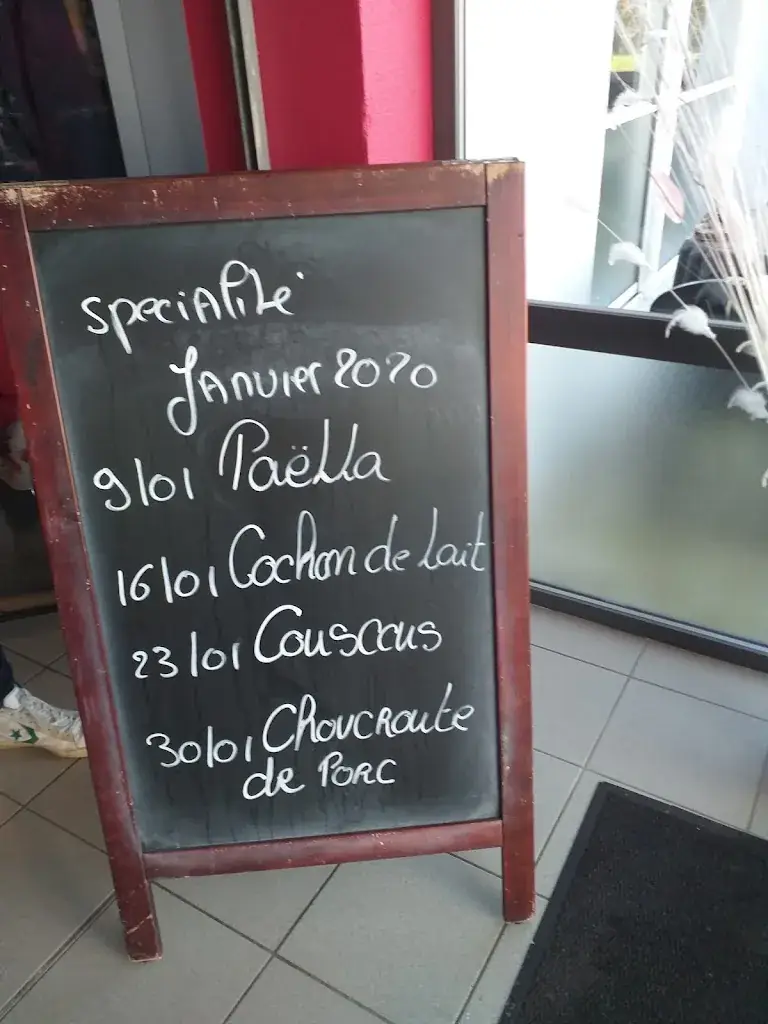 Spécialité
Janvier 2020
9/01 Paëlla
16/01 Cochon de Lait
23/01 Couscous
30/01 Choucroute
de Porc